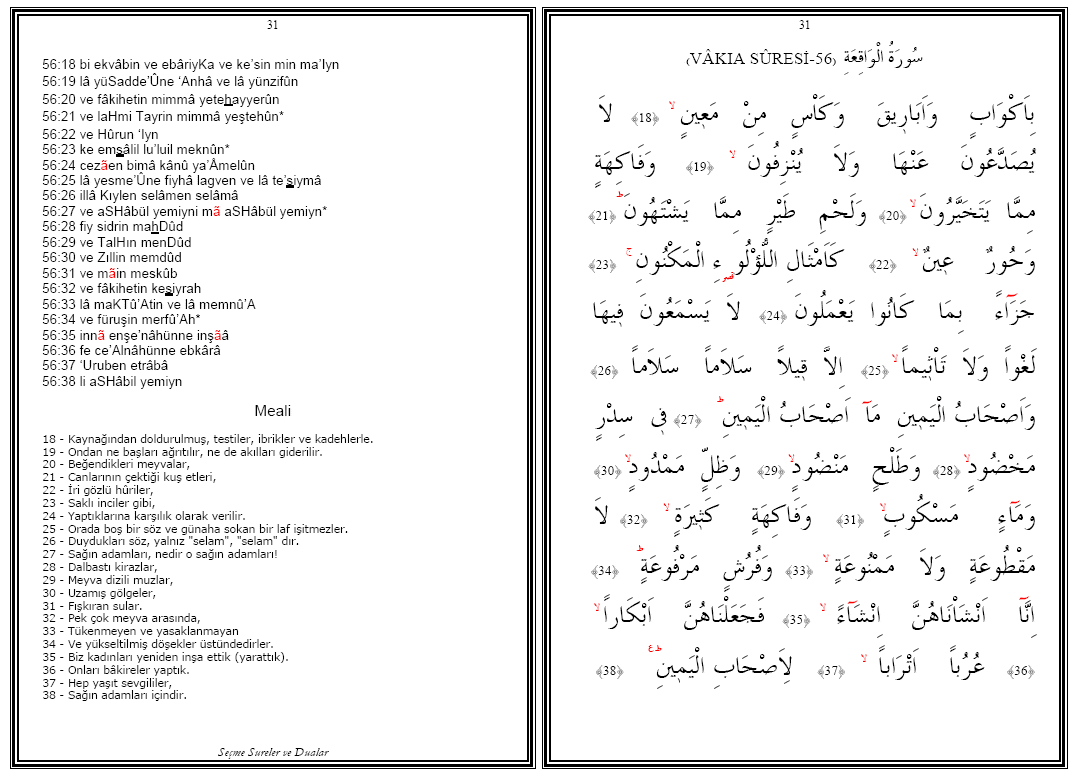 31
56:18 bi ekvâbin ve ebâriyKa ve ke’sin min ma’Iyn
56:19 lâ yüSadde’Ûne ‘Anhâ ve lâ yünzifûn
56:20 ve fâkihetin mimmâ yetehayyerûn
56:21 ve laHmi Tayrin mimmâ yeştehûn*
56:22 ve Hûrun ‘Iyn
56:23 ke emsâlil lu’luil meknûn*
56:24 cezãen bimâ kânû ya’Âmelûn
56:25 lâ yesme’Ûne fiyhâ lagven ve lâ te’siymâ
56:26 illâ Kıylen selâmen selâmâ
56:27 ve aSHâbül yemiyni mã aSHâbül yemiyn*
56:28 fiy sidrin mahDûd
56:29 ve TalHın menDûd
56:30 ve Zıllin memdûd
56:31 ve mãin meskûb
56:32 ve fâkihetin kesiyrah
56:33 lâ maKTû’Atin ve lâ memnû’A
56:34 ve füruşin merfû’Ah*
56:35 innã enşe’nâhünne inşãâ
56:36 fe ce’Alnâhünne ebkârâ
56:37 ‘Uruben etrâbâ
56:38 li aSHâbil yemiyn
Meali
18 - Kaynağından doldurulmuş, testiler, ibrikler ve kadehlerle.
19 - Ondan ne başları ağrıtılır, ne de akılları giderilir.
20 - Beğendikleri meyvalar,
21 - Canlarının çektiği kuş etleri,
22 - İri gözlü hûriler,
23 - Saklı inciler gibi,
24 - Yaptıklarına karşılık olarak verilir.
25 - Orada boş bir söz ve günaha sokan bir laf işitmezler.
26 - Duydukları söz, yalnız "selam", "selam" dır.
27 - Sağın adamları, nedir o sağın adamları!
28 - Dalbastı kirazlar,
29 - Meyva dizili muzlar,
30 - Uzamış gölgeler,
31 - Fışkıran sular.
32 - Pek çok meyva arasında,
33 - Tükenmeyen ve yasaklanmayan
34 - Ve yükseltilmiş döşekler üstündedirler.
35 - Biz kadınları yeniden inşa ettik (yarattık).
36 - Onları bâkireler yaptık.
37 - Hep yaşıt sevgililer,
38 - Sağın adamları içindir.
Seçme Sureler ve Dualar
31
سُورَةُ الْوَاقِعَةِ (VÂKIA SÛRESİ-56)
بِاَكْوَابٍ وَاَبَارٖيقَ وَكَاْسٍ مِنْ مَعٖينٍۙ ﴿18﴾ لَا
يُصَدَّعُونَ عَنْهَا وَلَا يُنْزِفُونَۙ ﴿19﴾ وَفَاكِهَةٍ
مِمَّا يَتَخَيَّرُونَۙ ﴿20﴾ وَلَحْمِ طَيْرٍ مِمَّا يَشْتَهُونَؕ ﴿21﴾
وَحُورٌ عٖينٌۙ ﴿22﴾ كَاَمْثَالِ اللُّؤْلُوءِ الْمَكْنُونِۚ ﴿23﴾
جَزَٓاءً بِمَا كَانُوا يَعْمَلُونَ ﴿24﴾ لَا يَسْمَعُونَ فٖيهَا
لَغْواً وَلَا تَاْثٖيماًۙ ﴿25﴾ اِلَّا قٖيلاً سَلَاماً سَلَاماً ﴿26﴾
وَاَصْحَابُ الْيَمٖينِ مَٓا اَصْحَابُ الْيَمٖينِؕ ﴿27﴾ فٖى سِدْرٍ
مَخْضُودٍۙ ﴿28﴾ وَطَلْحٍ مَنْضُودٍۙ ﴿29﴾ وَظِلٍّ مَمْدُودٍۙ ﴿30﴾
وَمَٓاءٍ مَسْكُوبٍۙ ﴿31﴾ وَفَاكِهَةٍ كَثٖيرَةٍۙ ﴿32﴾ لَا
مَقْطُوعَةٍ وَلَا مَمْنُوعَةٍۙ ﴿33﴾ وَفُرُشٍ مَرْفُوعَةٍؕ ﴿34﴾
اِنَّٓا اَنْشَاْنَاهُنَّ اِنْشَٓاءًۙ ﴿35﴾ فَجَعَلْنَاهُنَّ اَبْكَاراًۙ
﴿36﴾ عُرُباً اَتْرَاباًۙ ﴿37﴾ لِاَصْحَابِ الْيَمٖينِؕ ﴿38﴾